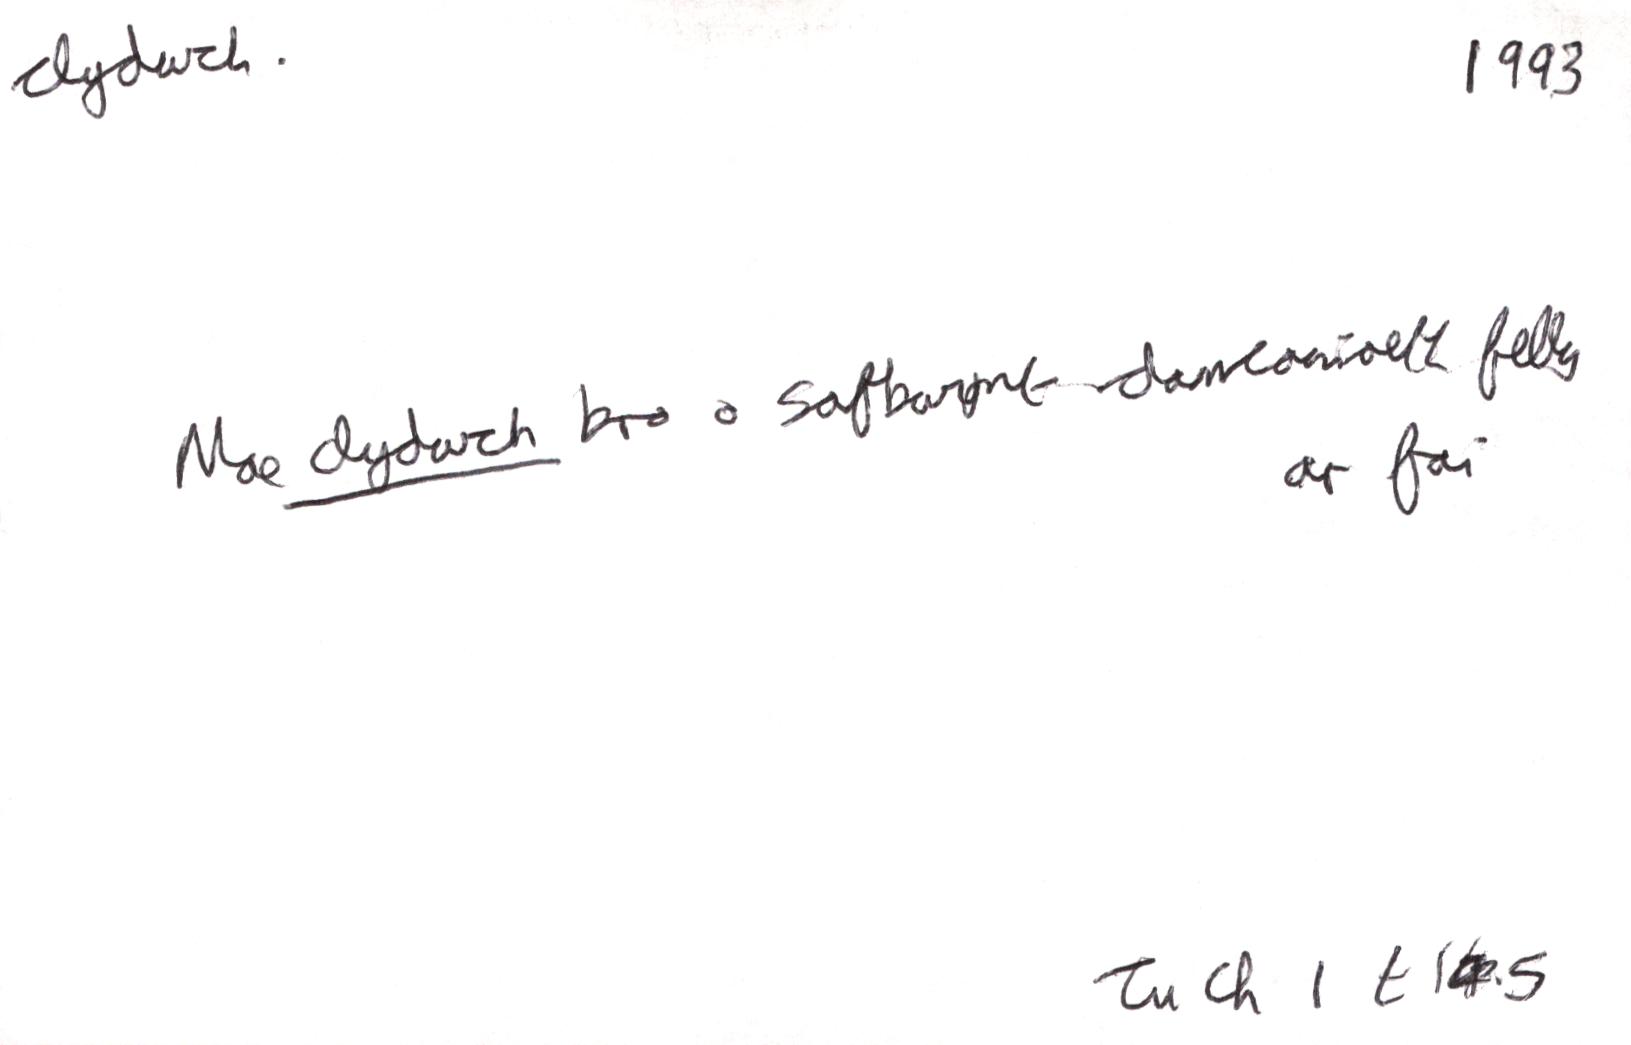 clydwch. 1993
Mae clydwch bro o safbwynt damcaniaeth felly
ar fai
Tu Ch 1 t